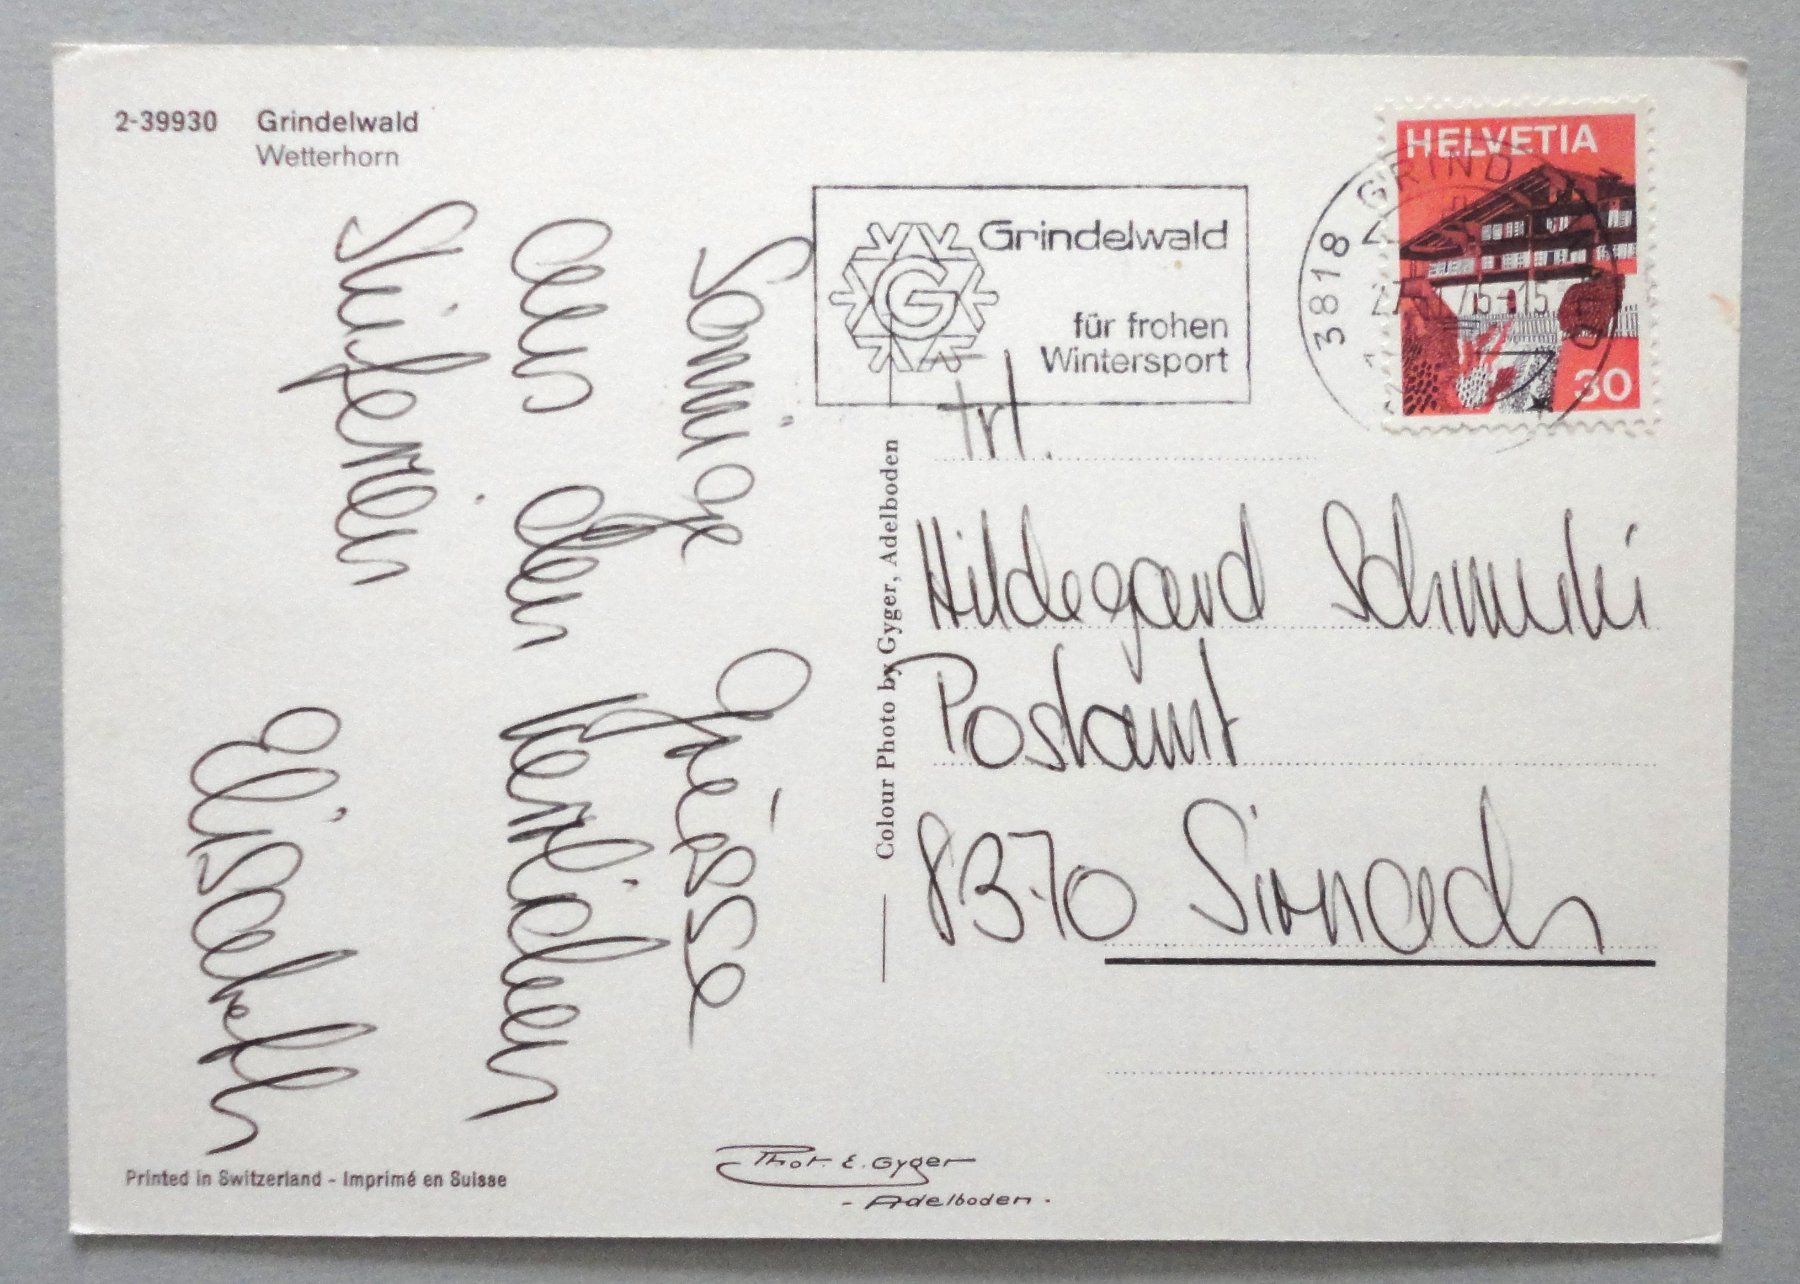 2-39930 Grindelwald
Wetterhorn
Sonnige Grüsse
aus den herrlichen
Skiferien
Elisabeth
Printed in Switzerland - Imprimé en Suisse
Colour Photo by Gyger, Adelboden
Phot. E. Gyger
- Adelboden -
Grindelwald
G
für frohen
Wintersport
HELVETIA
30
3818 GRIND
Frl.
Hildegard
Postamt
8370 Sirnach